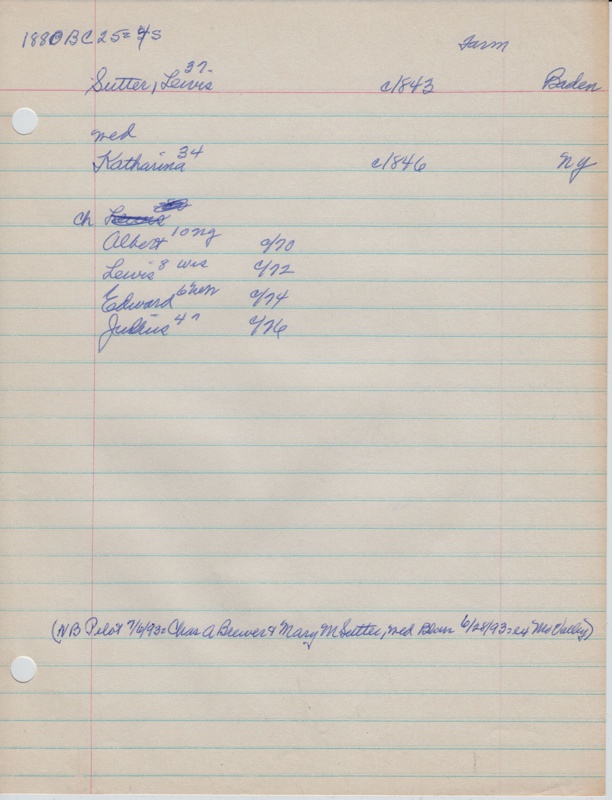 1880 BC 25 = 4s
Farm
Sutter, Lewis 37 c/1843 Baden
wed
Katharina 34 c/1846 NY
ch Lewis
Albert 10 NY c/70
Lewis 8 Wis c/72
Edward 6 Neb c/74
Julius 4 " c/76
(NB Pilot 7/6/93 = Chas A Brewer & Mary M Sutter, wed Blair 6/28/93 = e4 Mo Valley)